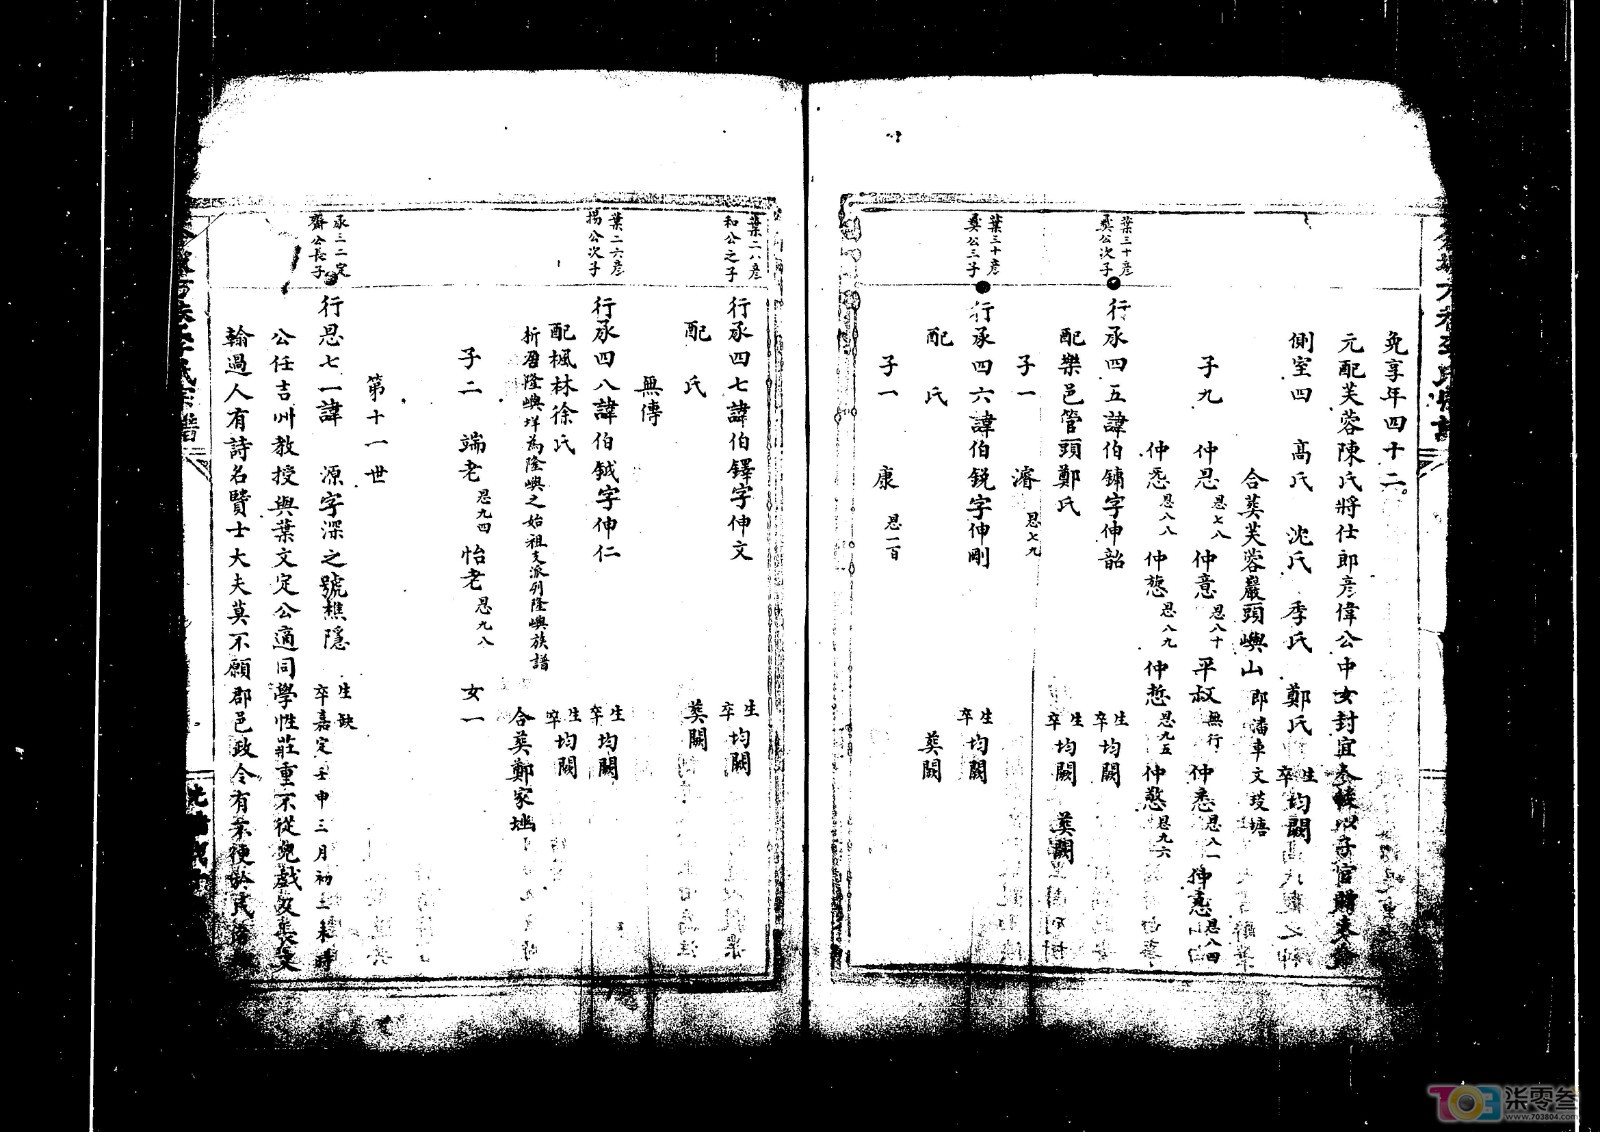 免享年四十二。
元配芙蓉陳氏將仕郎彥偉公中女封宜 以子官贈
側室四 高氏 沈氏 季氏 鄭氏 生卒均闕
合葬芙蓉巖頭嶼山 郎潘車文 塘
子九 仲恩恩七八 仲意恩八十 平叔無行 仲悉恩八一 仲恴恩八四
仲悉恩八八 仲慥恩八九 仲悊恩九五 仲憼恩九六
葉三十彥
龔公次子
行承四五諱伯鏞字伸韶 生卒均闕
配樂邑管頭鄭氏 生卒均闕 葬闕
子一 濬 恩七九
葉三十彥
龔公三子
行承四六諱伯銳字伸剛 生卒均闕
配 氏 葬闕
子一 康 恩一百
葉二八彥
和公之子
行承四七諱伯鐸字伸文 生卒均闕
配 氏 葬闕
無傳
葉二六彥
揚公次子
行承四八諱伯鉞字伸仁 生卒均闕
配楓林徐氏 生卒均闕
析居隆嶼垟為隆嶼之始祖支派列隆嶼族譜 合葬鄭家坳
子二 端老恩九四 怡老恩九八 女一
第十一世
承三二定
齋公長子
行恩七一諱 源字深之號樵隱 生缺 卒嘉定壬申三月初三未時
公任吉州教授與葉文定公適同學性莊重不從兒戲及長文
翰過人有詩名賢士大夫莫不願郡邑政令有未便於民
703804
柒零叁
www.703804.com